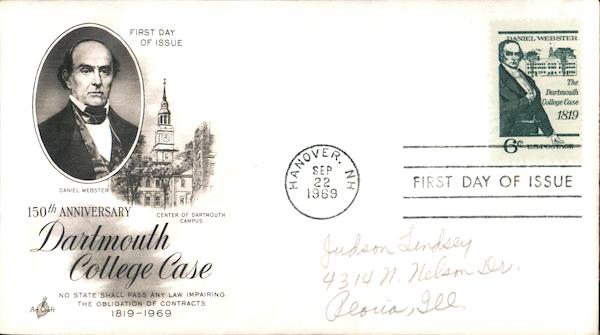 FIRST DAY
OF ISSUE
DANIEL WEBSTER
CENTER OF DARTMOUTH
CAMPUS
150th ANNIVERSARY
Dartmouth
College Case
NO STATE SHALL PASS ANY LAW IMPAIRING
THE OBLIGATION OF CONTRACTS
1819-1969
Art Craft
HANOVER, NH
SEP
22
1969
DANIEL WEBSTER
The
Dartmouth
College Case
1819
6c U.S. POSTAGE
FIRST DAY OF ISSUE
Judson Lindsey
4314 N. Nelson Dr.
Peoria, Ill.